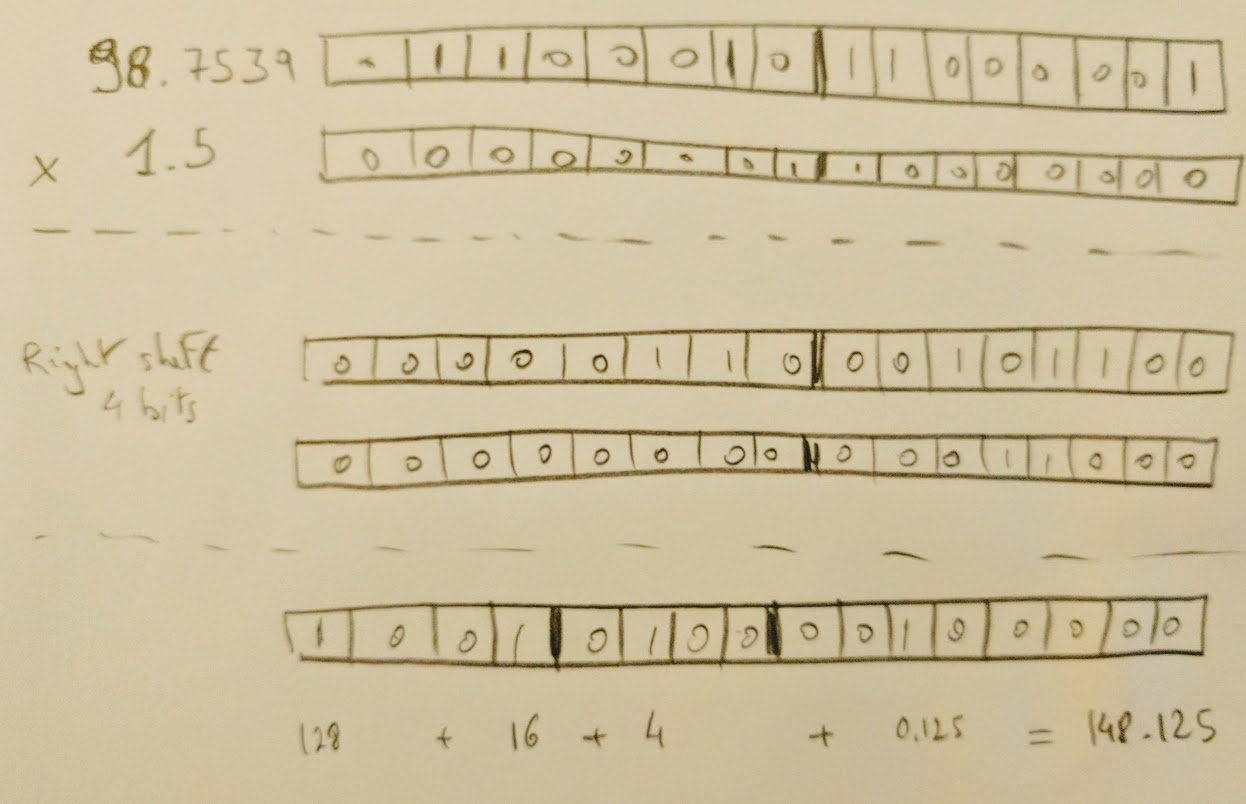 98.7539 0 1 1 0 0 0 1 0 1 1 0 0 0 0 0 1
x 1.5 0 0 0 0 0 0 0 1 1 0 0 0 0 0 0 0
Right shift 0 0 0 0 0 1 1 0 0 0 1 0 1 1 0 0
4 bits
0 0 0 0 0 0 0 0 0 0 0 1 1 0 0 0
1 0 0 1 0 1 0 0 0 0 1 0 0 0 0 0
128 + 16 + 4 + 0.125 = 148.125